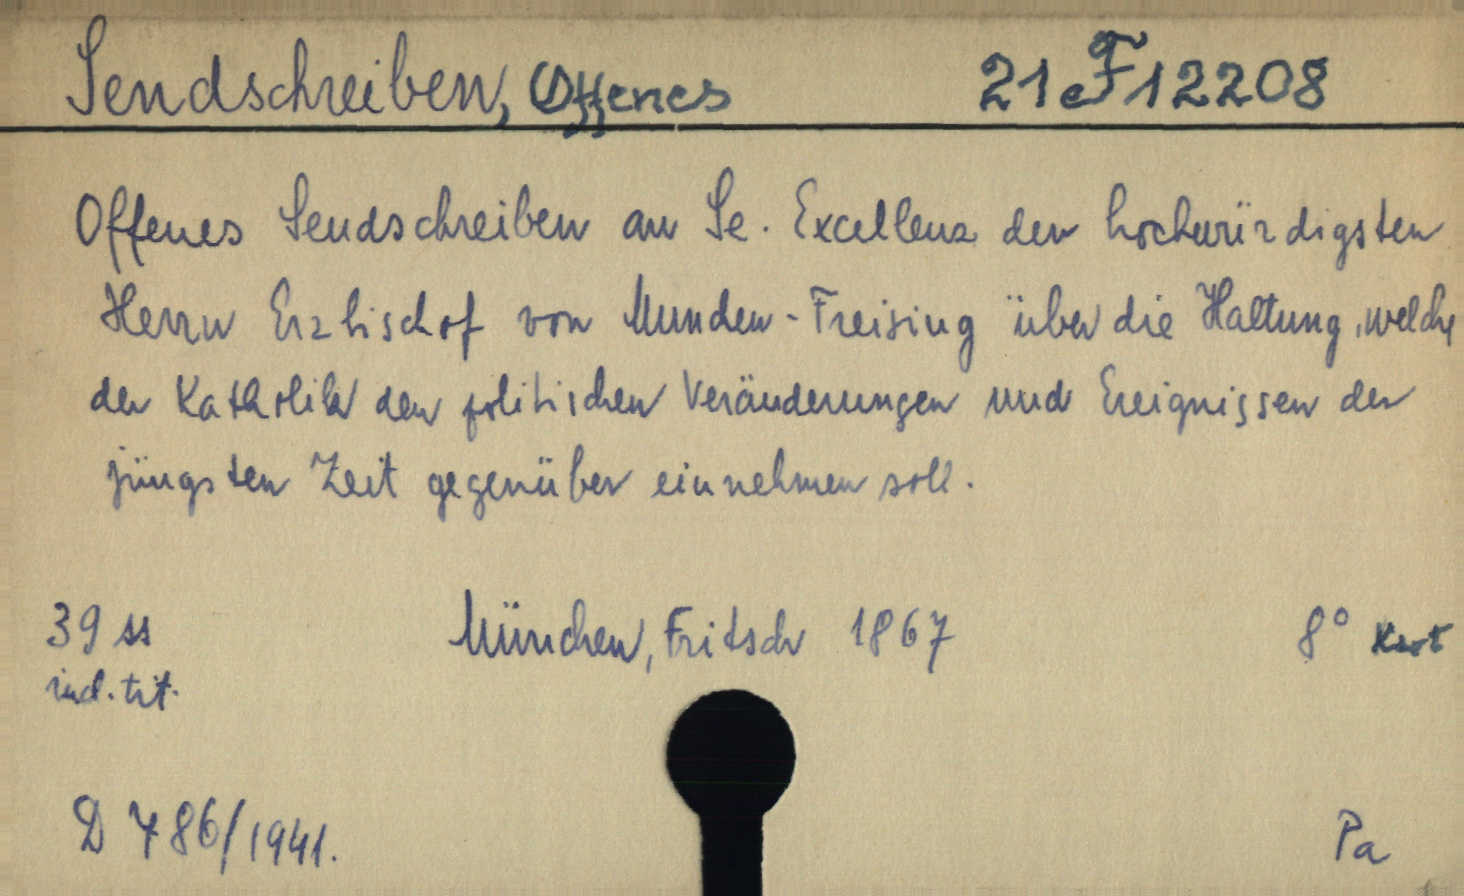 Sendschreiben, Offenes 21 F 12208
Offenes Sendschreiben an Se. Excellenz den hochwürdigsten
Herrn Erzbischof von Munchen-Freising über die Haltung, welche
der Katholik den politischen Veränderungen und Ereignissen der
jüngsten Zeit gegenüber einnehmen soll.
39 ss München, Fritsch 1867 8°
incl. tit.
D 786/1941. Pa